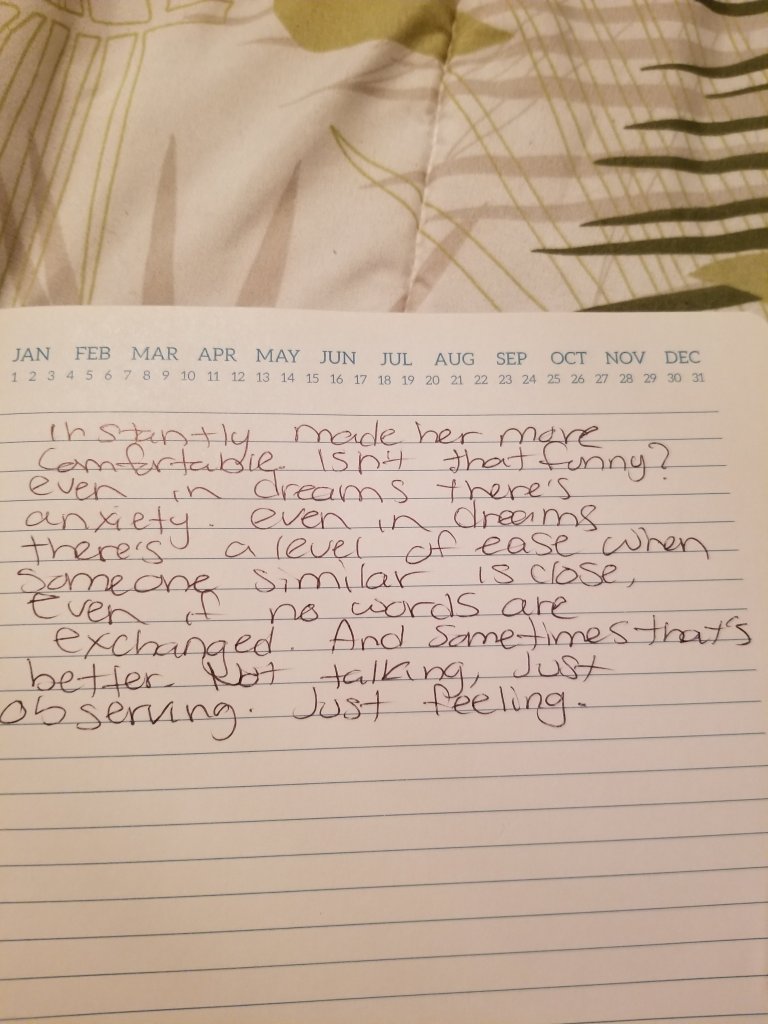 JAN FEB MAR APR MAY JUN JUL AUG SEP OCT NOV DEC
1 2 3 4 5 6 7 8 9 10 11 12 13 14 15 16 17 18 19 20 21 22 23 24 25 26 27 28 29 30 31
instantly made her more
comfortable. Isn't that funny?
even in dreams there's
anxiety. even in dreams
there's a level of ease when
someone similar is close,
even if no words are
exchanged. And sometimes that's
better. Not talking, Just
observing. Just feeling.